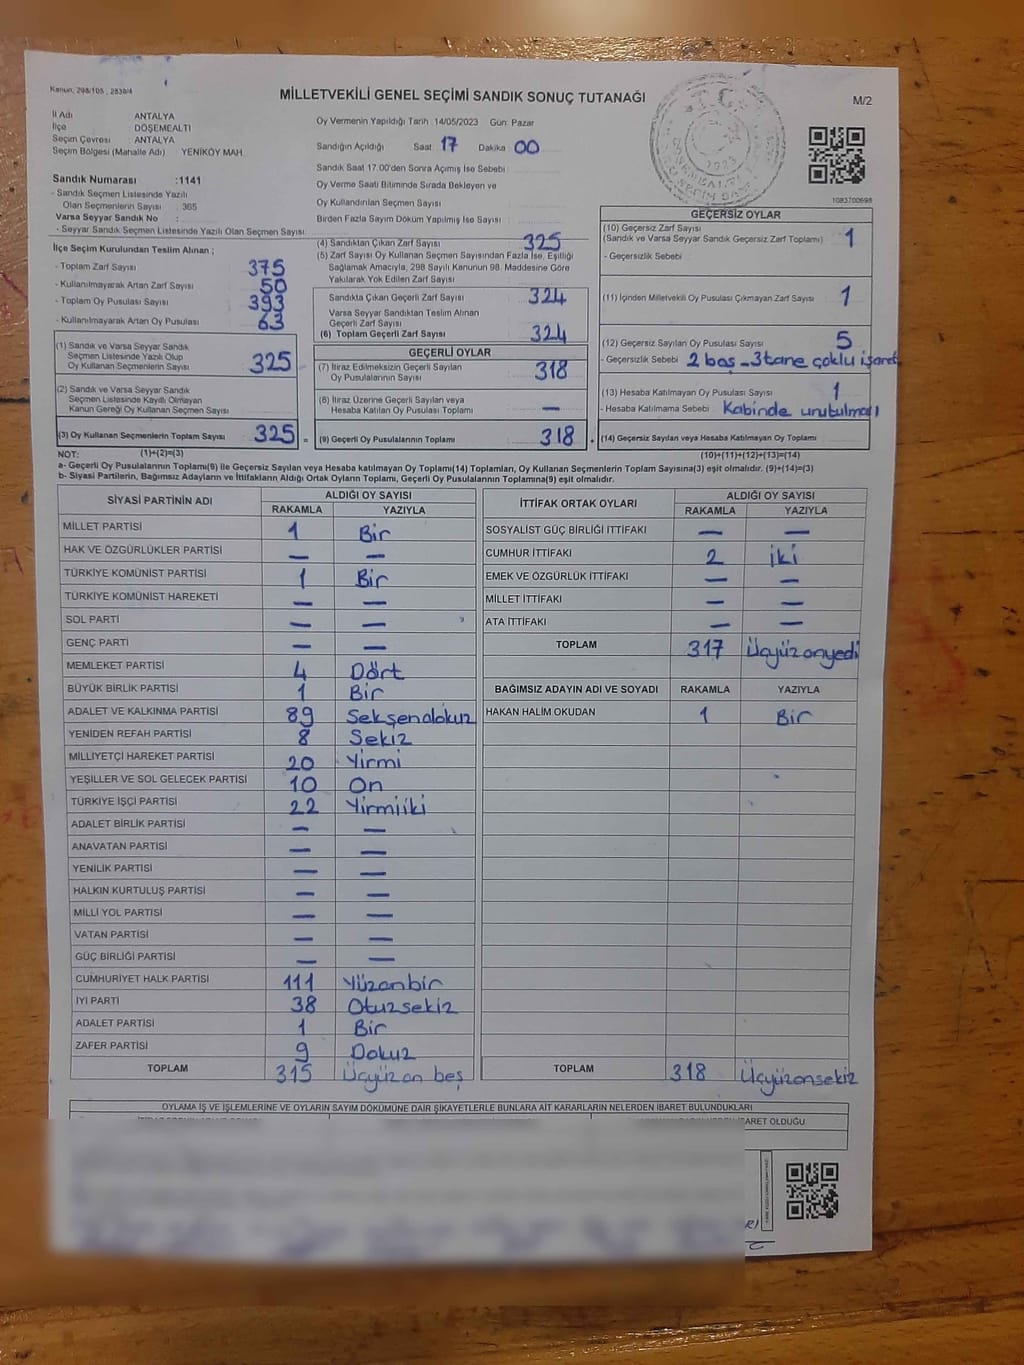 Kanun, 298/105 , 2839/4
MİLLETVEKİLİ GENEL SEÇİMİ SANDIK SONUÇ TUTANAĞI
M/2
İl Adı ANTALYA
İlçe DÖŞEMEALTI
Seçim Çevresi : ANTALYA
Seçim Bölgesi (Mahalle Adı) YENİKÖY MAH.
Sandık Numarası :1141
- Sandık Seçmen Listesinde Yazılı
Olan Seçmenlerin Sayısı : 365
Varsa Seyyar Sandık No :
- Seyyar Sandık Seçmen Listesinde Yazılı Olan Seçmen Sayısı:
Oy Vermenin Yapıldığı Tarih :14/05/2023 Gün: Pazar
Sandığın Açıldığı Saat 17 Dakika 00
Sandık Saat 17.00'den Sonra Açımış İse Sebebi :
Oy Verme Saati Bitiminde Sırada Bekleyen ve
Oy Kullandırılan Seçmen Sayısı
Birden Fazla Sayım Döküm Yapılmış İse Sayısı :
1923
1083700698
İlçe Seçim Kurulundan Teslim Alınan ;
- Toplam Zarf Sayısı 375
- Kullanılmayarak Artan Zarf Sayısı 50
- Toplam Oy Pusulası Sayısı 393
- Kullanılmayarak Artan Oy Pusulası 63
(1) Sandık ve Varsa Seyyar Sandık
Seçmen Listesinde Yazılı Olup
Oy Kullanan Seçmenlerin Sayısı 325
(2) Sandık ve Varsa Seyyar Sandık
Seçmen Listesinde Kayıtlı Olmayan
Kanun Gereği Oy Kullanan Seçmen Sayısı
(3) Oy Kullanan Seçmenlerin Toplam Sayısı 325
(4) Sandıktan Çıkan Zarf Sayısı 325
(5) Zarf Sayısı Oy Kullanan Seçmen Sayısından Fazla İse, Eşitliği
Sağlamak Amacıyla, 298 Sayılı Kanunun 98. Maddesine Göre
Yakılarak Yok Edilen Zarf Sayısı
Sandıkta Çıkan Geçerli Zarf Sayısı 324
Varsa Seyyar Sandıktan Teslim Alınan
Geçerli Zarf Sayısı
(6) Toplam Geçerli Zarf Sayısı 324
GEÇERLİ OYLAR
(7) İtiraz Edilmeksizin Geçerli Sayılan
Oy Pusulalarının Sayısı 318
(8) İtiraz Üzerine Geçerli Sayılan veya
Hesaba Katılan Oy Pusulası Toplamı —
= (9) Geçerli Oy Pusulalarının Toplamı 318
GEÇERSİZ OYLAR
(10) Geçersiz Zarf Sayısı
(Sandık ve Varsa Seyyar Sandık Geçersiz Zarf Toplamı) 1
- Geçersizlik Sebebi :
(11) İçinden Milletvekili Oy Pusulası Çıkmayan Zarf Sayısı 1
(12) Geçersiz Sayılan Oy Pusulası Sayısı 5
- Geçersizlik Sebebi 2 boş - 3 tane çoklu işaret
(13) Hesaba Katılmayan Oy Pusulası Sayısı 1
- Hesaba Katılmama Sebebi : Kabinde unutulması
+ (14) Geçersiz Sayılan veya Hesaba Katılmayan Oy Toplamı
NOT: (1)+(2)=(3) (10)+(11)+(12)+(13)=(14)
a- Geçerli Oy Pusulalarının Toplamı(9) ile Geçersiz Sayılan veya Hesaba katılmayan Oy Toplamı(14) Toplamları, Oy Kullanan Seçmenlerin Toplam Sayısına(3) eşit olmalıdır. (9)+(14)=(3)
b- Siyasi Partilerin, Bağımsız Adayların ve İttifakların Aldığı Ortak Oyların Toplamı, Geçerli Oy Pusulalarının Toplamına(9) eşit olmalıdır.
SİYASİ PARTİNİN ADI ALDIĞI OY SAYISI
RAKAMLA YAZIYLA
MİLLET PARTİSİ 1 Bir
HAK VE ÖZGÜRLÜKLER PARTİSİ — —
TÜRKİYE KOMÜNİST PARTİSİ 1 Bir
TÜRKİYE KOMÜNİST HAREKETİ — —
SOL PARTİ — —
GENÇ PARTİ — —
MEMLEKET PARTİSİ 4 Dört
BÜYÜK BİRLİK PARTİSİ 1 Bir
ADALET VE KALKINMA PARTİSİ 89 Seksendokuz
YENİDEN REFAH PARTİSİ 8 Sekiz
MİLLİYETÇİ HAREKET PARTİSİ 20 Yirmi
YEŞİLLER VE SOL GELECEK PARTİSİ 10 On
TÜRKİYE İŞÇİ PARTİSİ 22 Yirmiiki
ADALET BİRLİK PARTİSİ — —
ANAVATAN PARTİSİ — —
YENİLİK PARTİSİ — —
HALKIN KURTULUŞ PARTİSİ — —
MİLLİ YOL PARTİSİ — —
VATAN PARTİSİ — —
GÜÇ BİRLİĞİ PARTİSİ — —
CUMHURİYET HALK PARTİSİ 111 Yüzonbir
İYİ PARTİ 38 Otuzsekiz
ADALET PARTİSİ 1 Bir
ZAFER PARTİSİ 9 Dokuz
TOPLAM 315 Üçyüzon beş
İTTİFAK ORTAK OYLARI ALDIĞI OY SAYISI
RAKAMLA YAZIYLA
SOSYALİST GÜÇ BİRLİĞİ İTTİFAKI — —
CUMHUR İTTİFAKI 2 iki
EMEK VE ÖZGÜRLÜK İTTİFAKI — —
MİLLET İTTİFAKI — —
ATA İTTİFAKI — —
TOPLAM 317 Üçyüzonyedi
BAĞIMSIZ ADAYIN ADI VE SOYADI RAKAMLA YAZIYLA
HAKAN HALİM OKUDAN 1 Bir
TOPLAM 318 Üçyüzonsekiz
OYLAMA İŞ VE İŞLEMLERİNE VE OYLARIN SAYIM DÖKÜMÜNE DAİR ŞİKAYETLERLE BUNLARA AİT KARARLARIN NELERDEN İBARET BULUNDUKLARI
OLDUĞU